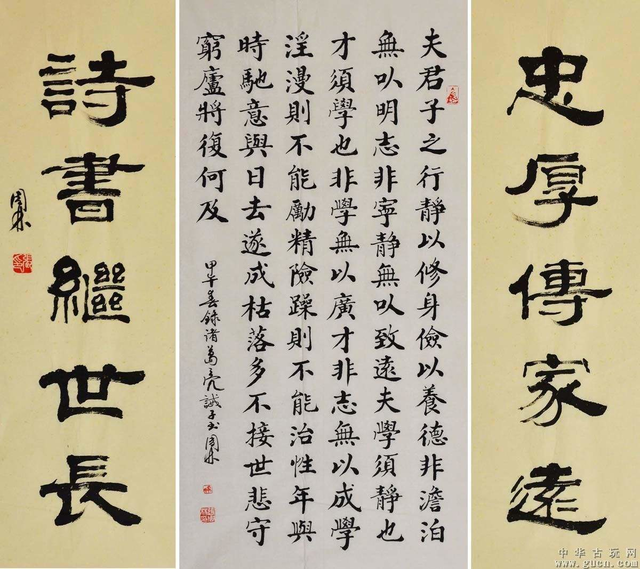 忠厚傳家遠
夫君子之行靜以修身儉以養德非澹泊
無以明志非寧靜無以致遠夫學須靜也
才須學也非學無以廣才非志無以成學
淫漫則不能勵精險躁則不能治性年與
時馳意與日去遂成枯落多不接世悲守
窮廬將復何及
甲午春錄诸葛亮誡子书周林
詩書繼世長
周林
中华古玩网
www.gucn.com